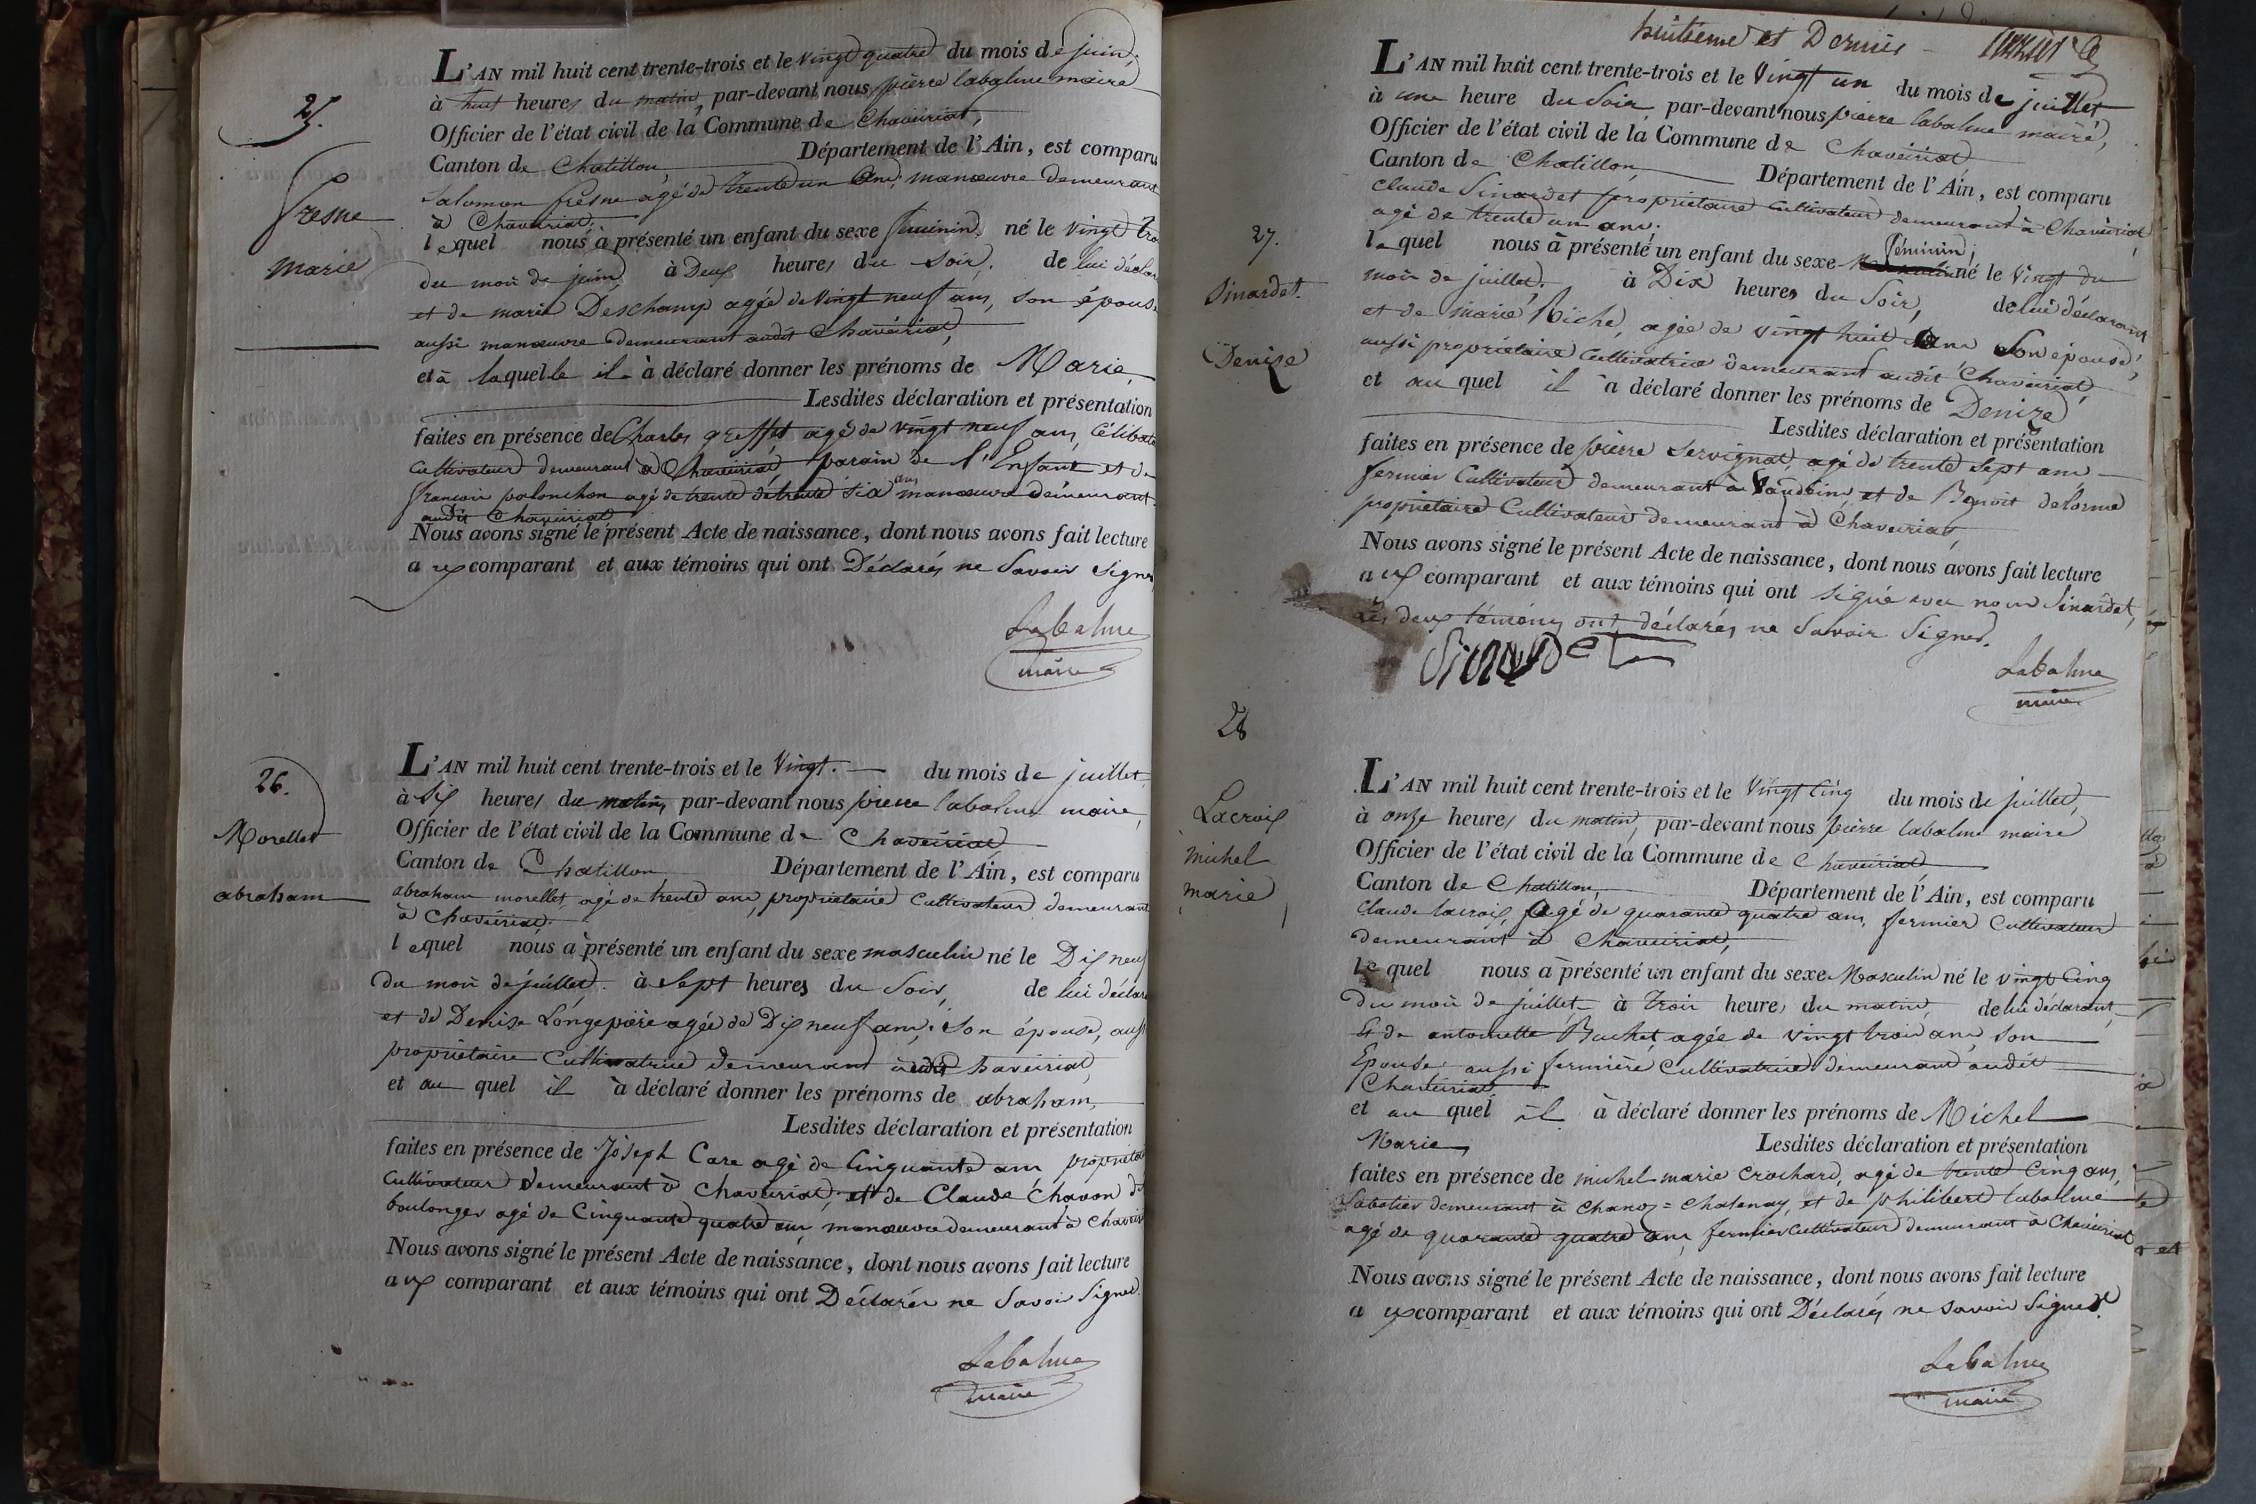 25.
fresne
marie
L'AN mil huit cent trente-trois et le vingt quatre du mois de juin,
à huit heures du matin, par-devant nous pierre labalme maire
Officier de l'état civil de la Commune de Chaveiriat,
Canton de Chatillon, Département de l'Ain, est comparu
Salomon fresne agé de trente un ans, manœuvre demeurant
à Chaveiriat,
lequel nous à présenté un enfant du sexe feminin, né le vingt
du mois de juin, à Deux heures du soir, de lui
et de marie Deschamp agée de vingt neuf ans, son épouse
aussi manœuvre demeurant audit Chaveiriat,
et à laquelle il à déclaré donner les prénoms de Marie,
Lesdites déclaration et présentation
faites en présence de Charles greffet agé de vingt neuf ans,
cultivateur demeurant à Chaveiriat parain de l'Enfant et de
françois polonchon agé de trente de trente six ans manœuvre demeurant
audit Chaveiriat
Nous avons signé le présent Acte de naissance, dont nous avons fait lecture
aux comparant et aux témoins qui ont Déclarés ne Savoir Signer
Labalme
maire
26.
Morellet
abraham
L'AN mil huit cent trente-trois et le Vingt. du mois de juillet
à Six heures du matin, par-devant nous pierre labalme maire,
Officier de l'état civil de la Commune de Chaveiriat
Canton de Chatillon Département de l'Ain, est comparu
abraham morellet agé de trente ans, propriétaire Cultivateur demeurant
à Chaveiriat.
lequel nous à présenté un enfant du sexe masculin né le Dix neuf
du mois de juillet. à Sept heures du Soir, de lui
et de Denise Longepiere agée de Dix neuf ans, son épouse, aussi
propriétaire Cultivatrice demeurant audit haveiriat,
et au quel il à déclaré donner les prénoms de abraham,
Lesdites déclaration et présentation
faites en présence de Joseph Care agé de Cinquante ans,
Cultivateur demeurant à Chaveiriat, et de Claude Chavon dit
boulonger agé de Cinquante quatre ans, manœuvre demeurant à
Nous avons signé le présent Acte de naissance, dont nous avons fait lecture
aux comparant et aux témoins qui ont Déclarés ne Savoir Signer.
Labalme
maire
huitième et Dernier
27.
Sinardet.
Denise
L'AN mil huit cent trente-trois et le Vingt un du mois de juillet
à une heure du Soir, par-devant nous pierre labalme maire,
Officier de l'état civil de la Commune de Chaveiriat
Canton de Chatillon, Département de l'Ain, est comparu
Claude Sinardet propriétaire Cultivateur demeurant à Chaveiriat
agé de trente un ans.
lequel nous à présenté un enfant du sexe féminin, né le Vingt du
mois de juillet. à Dix heures du Soir, de lui déclarant
et de marie Riche, agée de vingt huit ans Son épouse,
aussi propriétaire Cultivatrice demeurant audit Chaveiriat,
et au quel il à déclaré donner les prénoms de Denise
Lesdites déclaration et présentation
faites en présence de pierre Servignat, agé de trente Sept ans
fermier Cultivateur demeurant à Vandeins et de Benoit delorme
propriétaire Cultivateur demeurant à Chaveiriat,
Nous avons signé le présent Acte de naissance, dont nous avons fait lecture
aux comparant et aux témoins qui ont signé avec nous Sinardet,
les deux témoins ont déclarés ne Savoir Signer.
Sinardet
Labalme
maire
28
Lacroix
michel
marie
L'AN mil huit cent trente-trois et le Vingt Cinq du mois de juillet,
à onze heures du matin, par-devant nous pierre labalme maire
Officier de l'état civil de la Commune de Chaveiriat
Canton de Chatillon, Département de l'Ain, est comparu
Claude lacroix, agé de quarante quatre ans, fermier Cultivateur
demeurant à Chaveiriat,
lequel nous à présenté un enfant du sexe Masculin né le vingt Cinq
du mois de juillet à trois heures du matin, de lui déclarant,
et de antoinette Buchet, agée de vingt trois ans, Son
Epouse, aussi fermière Cultivatrice demeurant audit
Chaveiriat
et au quel il à déclaré donner les prénoms de Michel
Marie, Lesdites déclaration et présentation
faites en présence de michel marie Crochard, agé de trente Cinq ans,
Sabotier demeurant à Chanoz=Chatenay, et de philibert labalme
agé de quarante quatre ans, fermier Cultivateur demeurant à Chaveiriat
Nous avons signé le présent Acte de naissance, dont nous avons fait lecture
aux comparant et aux témoins qui ont Déclarés ne savoir Signer.
Labalme
maire